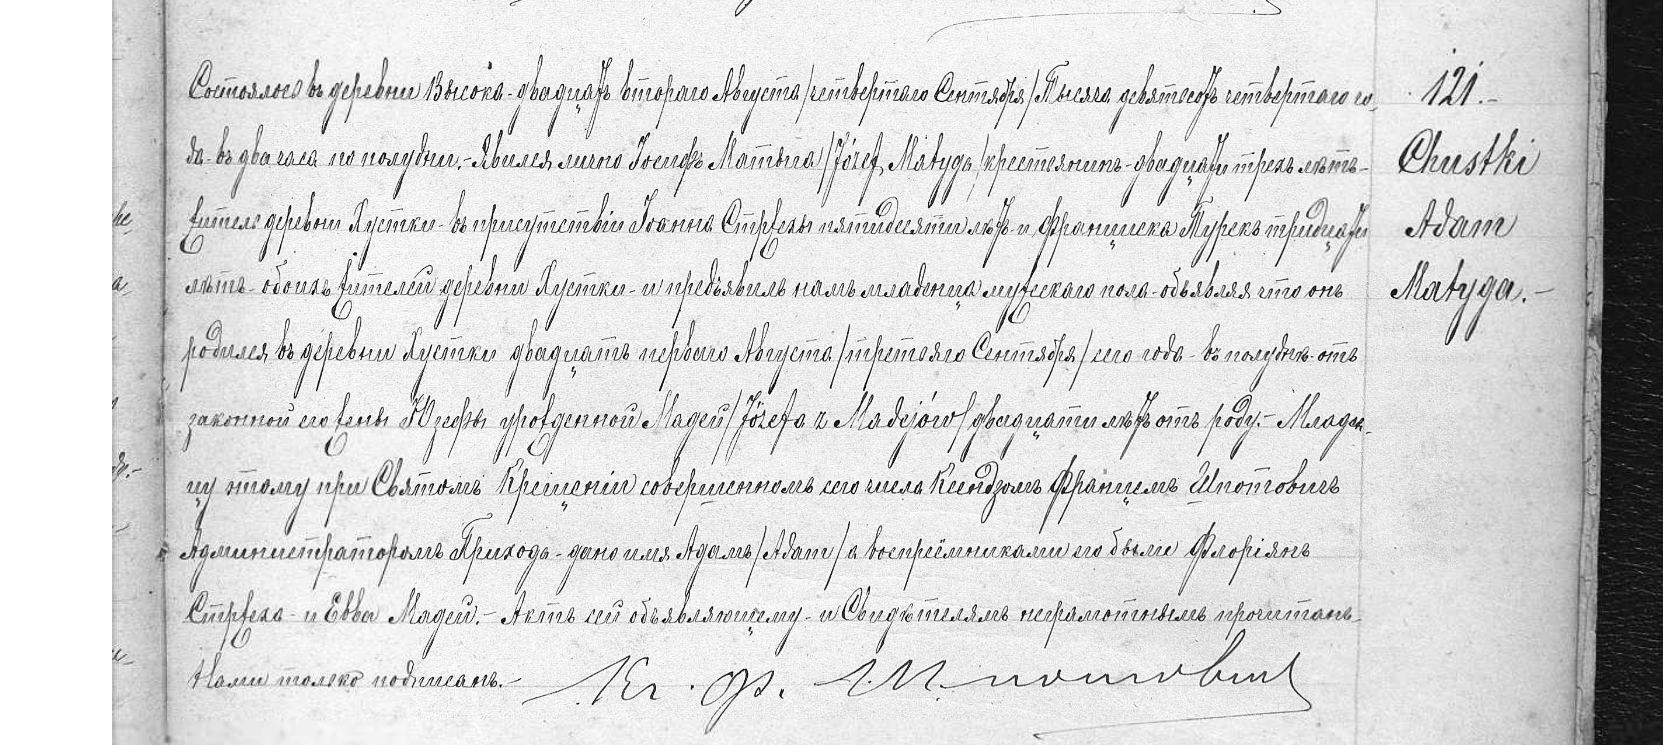 Состоялось въ деревни Высока - двадцать втораго Августа /четвертаго Сентября/ Тысяча девятсотъ четвертаго го-
да - въ два часа по полудни. - Явился лично Іосифъ Матыга /Józef Matyga/ крестьянинъ - двадцати трехъ лѣтъ -
житель деревни Хустки - въ присутствіи Іоанна Стржехи пятидесяти лѣтъ - и Францишека Турекъ тридцати
лѣтъ - обоихъ жителей деревни Хустки - и предъявилъ намъ младенца мужескаго пола - объявляя что онъ
родился въ деревни Хустки двадцать перваго Августа /третьяго Сентября/ сего года - въ полудни - отъ
законной его жены Юзефы урожденной Мадей /Józefa z Madejów/ двадцати лѣтъ отъ роду. - Младен-
цу этому при Святомъ Крещеніи совершенномъ сего числа Ксендзомъ Францемъ Шпотовичъ
Администраторомъ Прихода - дано имя Адамъ /Adam/ а воспреёмниками его были Флоріянъ
Стржеха - и Евва Мадей. - Актъ сей объявляющему - и Свидѣтелямъ неграмотнымъ прочитанъ -
Нами только подписанъ. - Кс. Ф. Шпотович
121. -
Chustki
Adam
Matyga. -